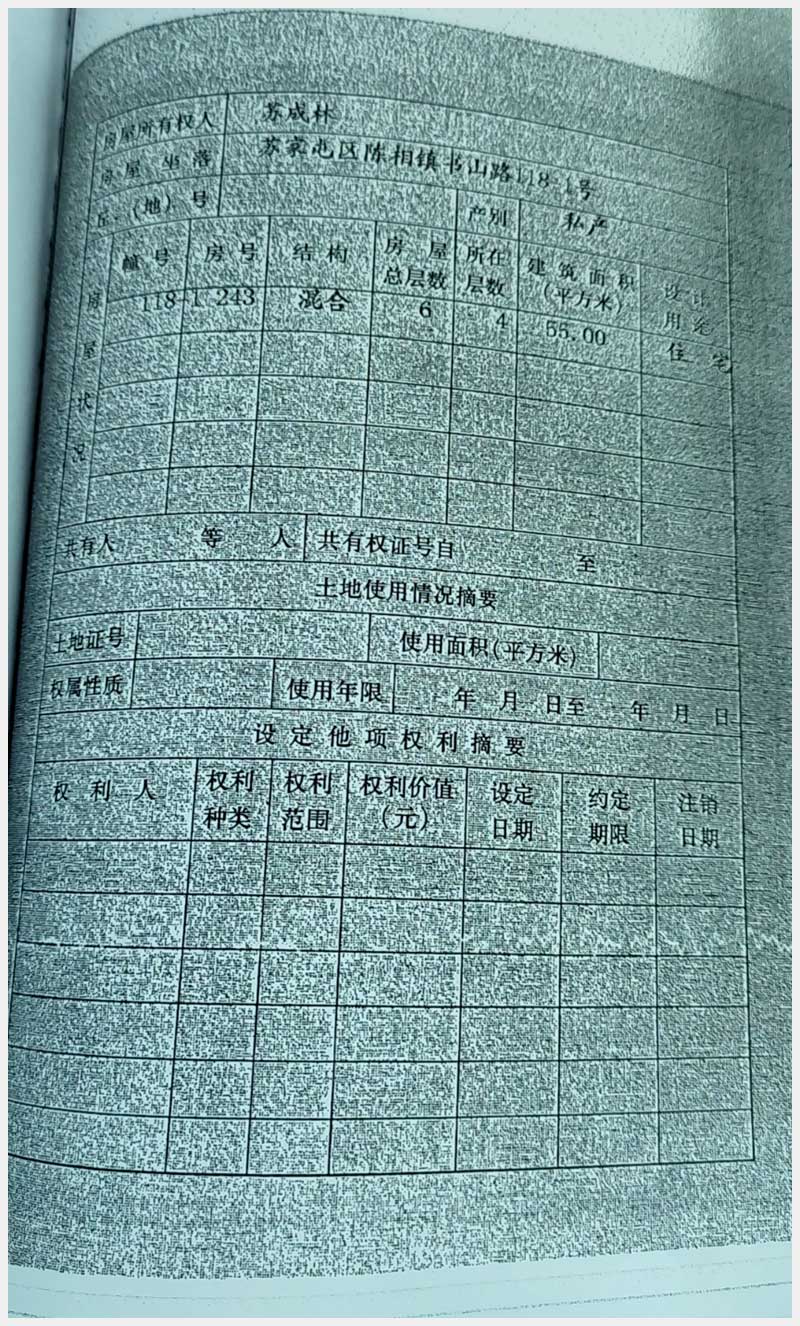 房屋所有权人 苏成林
房屋坐落 苏家屯区陈相镇书山路118-1号
丘(地)号 产别 私产
房屋状况 幢号 房号 结构 房屋总层数 所在层数 建筑面积(平方米) 设计用途
118-1 243 混合 6 4 55.00 住宅
共有人 等 人 共有权证号自 至
土地使用情况摘要
土地证号 使用面积(平方米)
权属性质 使用年限 年 月 日至 年 月 日
设定他项权利摘要
权利人 权利种类 权利范围 权利价值(元) 设定日期 约定期限 注销日期